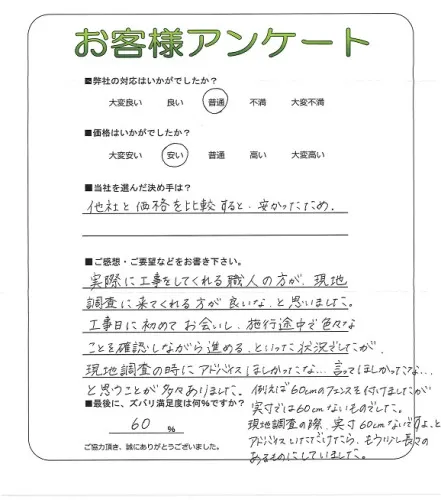 お客様アンケート
■弊社の対応はいかがでしたか?
大変良い 良い 普通 不満 大変不満
■価格はいかがでしたか?
大変安い 安い 普通 高い 大変高い
■当社を選んだ決め手は?
他社と価格を比較すると、安かったため。
■ご感想・ご要望などをお書き下さい。
実際に工事をしてくれる職人の方が、現地
調査に来てくれる方が良いな、と思いました。
工事日に初めてお会いし、施行途中で色々な
ことを確認しながら進める、といった状況でしたが、
現地調査の時にアドバイスほしかったな…言ってほしかったな…
と思うことが多々ありました。例えば60cmのフェンスを付けましたが
実寸では60cmないものでした。
現地調査の際、実寸60cmないですよ、と
アドバイスいただけたら、もう少し長さの
あるものにしていました。
■最後に、ズバリ満足度は何%ですか?
60 %
ご協力頂き、誠にありがとうございました。